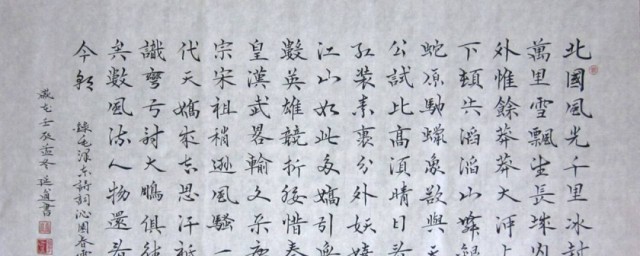 北國風光千里冰封
萬里雪飄望長城内
外惟餘莽莽大河上
下頓失滔滔山舞銀
蛇原馳蠟象欲與天
公試比高須晴日看
紅裝素裹分外妖嬈
江山如此多嬌引無
數英雄競折腰惜秦
皇漢武畧輸文采唐
宗宋祖稍遜風騷一
代天驕成吉思汗祇
識彎弓射大鵰俱往
矣數風流人物還看
今朝
錄毛澤東詩詞沁園春雪
歲在壬辰孟冬